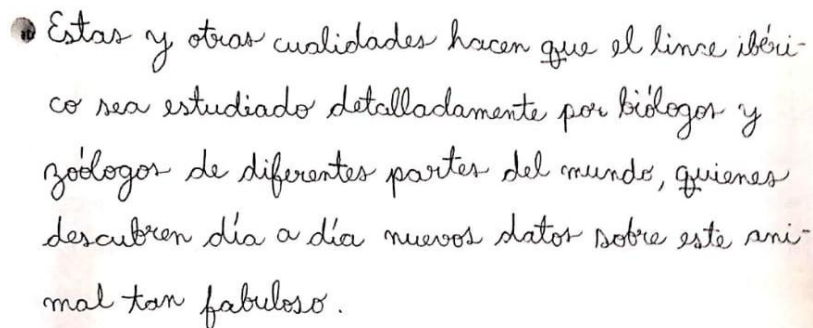 Estas y otras cualidades hacen que el lince ibéri-
co sea estudiado detalladamente por biólogos y
zoólogos de diferentes partes del mundo, quienes
descubren día a día nuevos datos sobre este ani-
mal tan fabuloso.